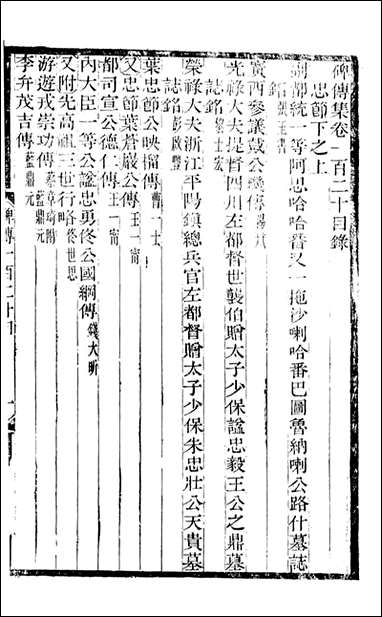 碑傳集卷一百二十目錄
忠節下之上
副都統一等阿思哈哈番又一拖沙喇哈番巴圖魯納喇公路什墓誌
銘 張玉書
廣西參議彭公傳
光祿大夫提督四川左都督世襲伯贈太子少保諡忠毅王公之鼎墓
誌銘 黎士宏
榮祿大夫浙江平陽鎮總兵官左都督贈太子少保朱忠壯公天貴墓
誌銘 彭啟豐
葉忠節公映榴傳 曹一士
又忠節葉蒼巖公傳 王一甯
都司宣公德仁傳 王一甯
內大臣一等公諡忠勇佟公國綱傳 錢大昕
又附先高祖三世行略 佟世思
游遊戎崇功傳 藍鼎元
李弁茂吉傳 藍鼎元
碑傳一百二十目